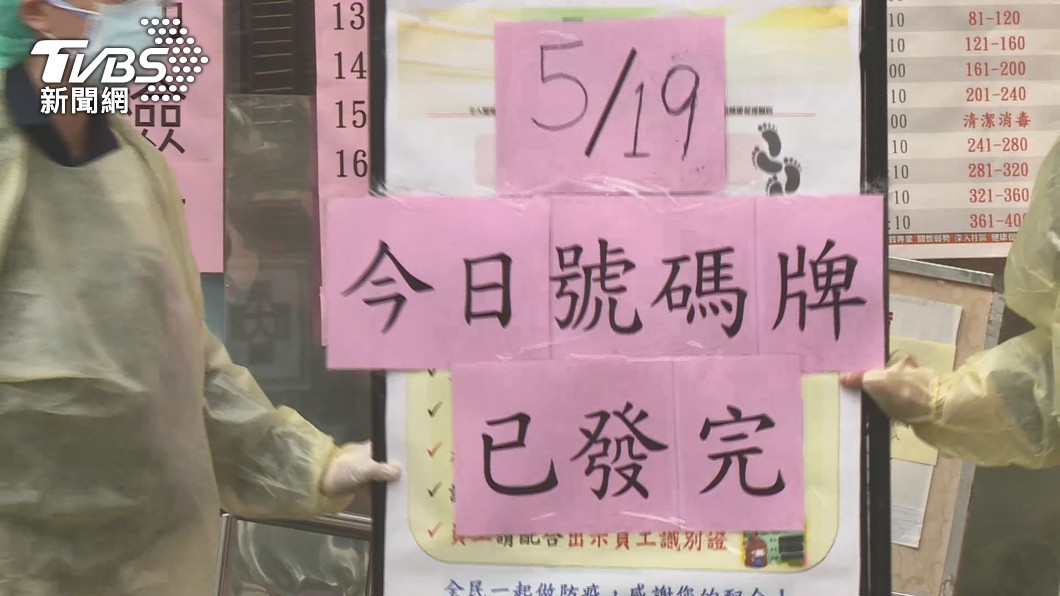 TVBS
新聞網
5/19
今日號碼牌
已發完
員工請配合出示員工識別證
全民一起做防疫，感謝您的配合！
13
14
15
16
10 81-120
10 121-160
00 161-200
10 201-240
00 清潔消毒
:10 241-280
:10 281-320
:10 321-360
:10 361-400